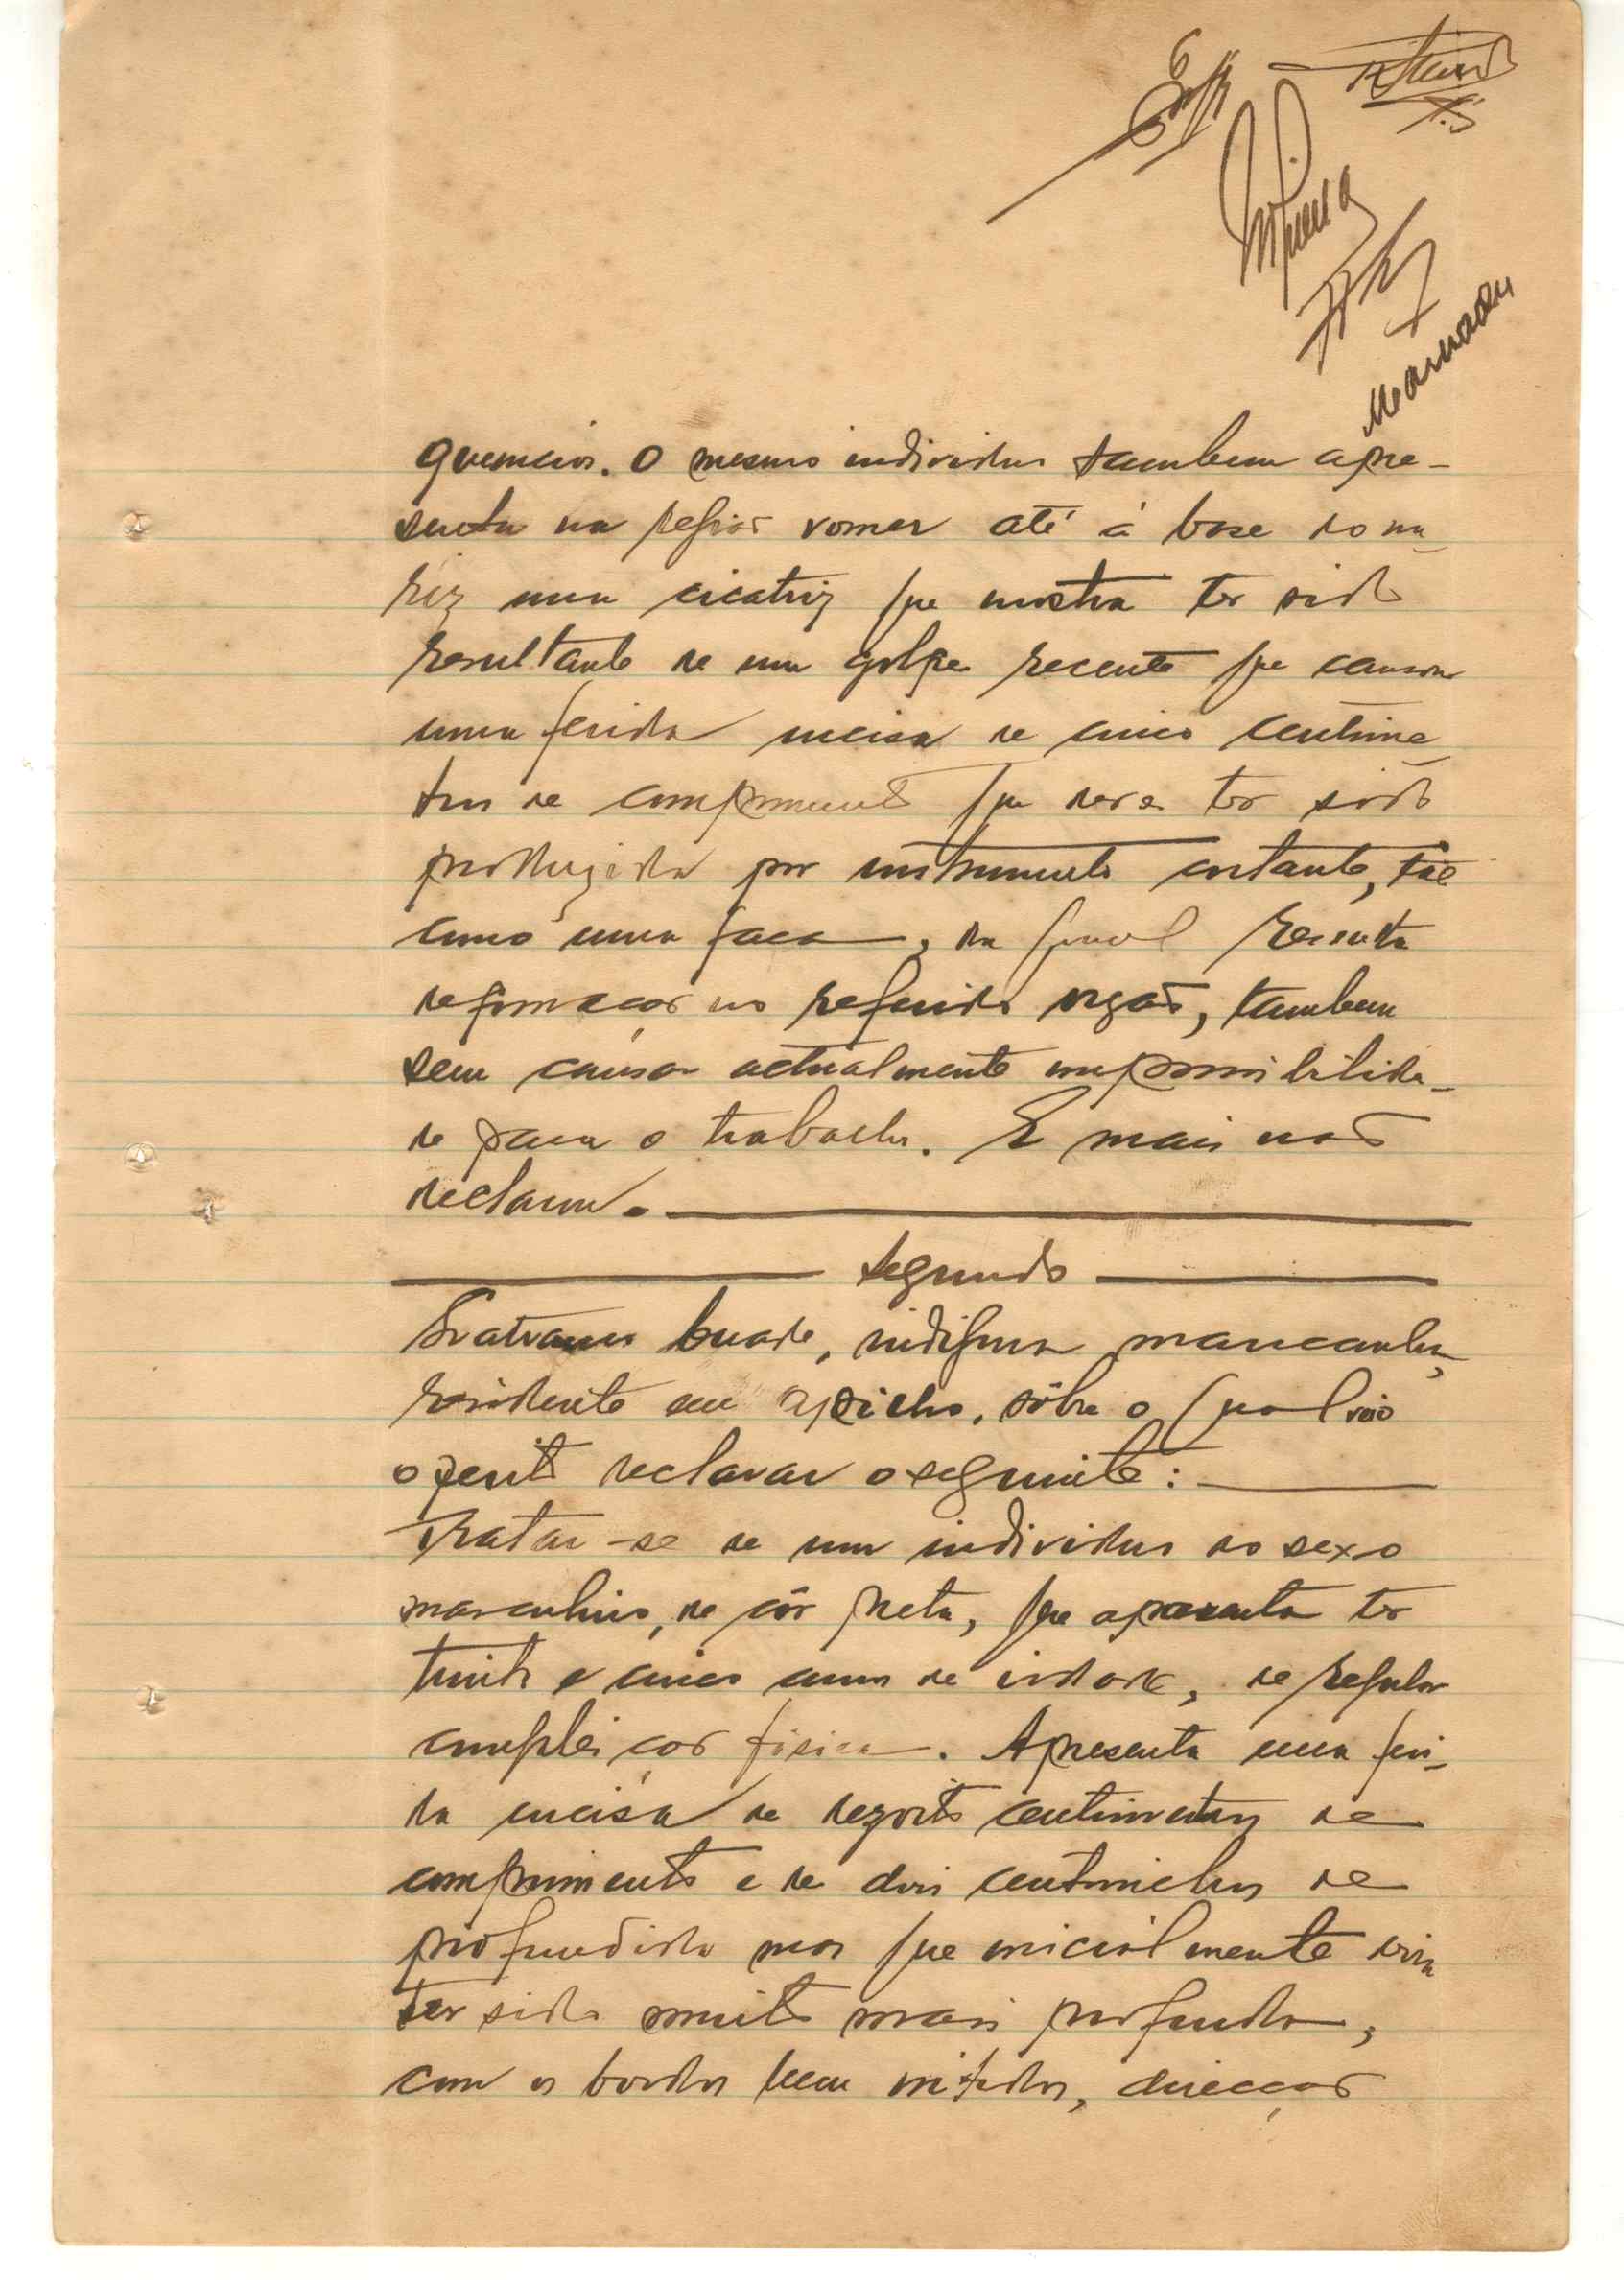 6
quencias. O mesmo individuo tambem apre-
senta na região vomer até á base do na-
riz uma cicatriz que mostra ter sido
resultante de um golpe recente que causou
uma ferida incisa de cinco centime-
tros de comprimento que deve ter sido
produzida por instrumento cortante, tal
como uma faca, da qual resulta
deformação no referido orgão, tambem
sem causar actualmente impossibilida-
de para o trabalho. E mais não
declarou.
Segundo
indigena mancanha,
residente em sôbre o qual veio
o perito declarar o seguinte:
Tratar-se de um individuo do sexo
masculino, de côr preta, que apresenta ter
trinta e cinco anos de idade, de regular
compleição fisica. Apresenta uma feri-
da incisa de dezoito centimetros de
comprimento e de dois centimetros de
profundida mas que inicialmente devia
ter sido muito mais profunda,
com os bordos bem nitidos, direcção